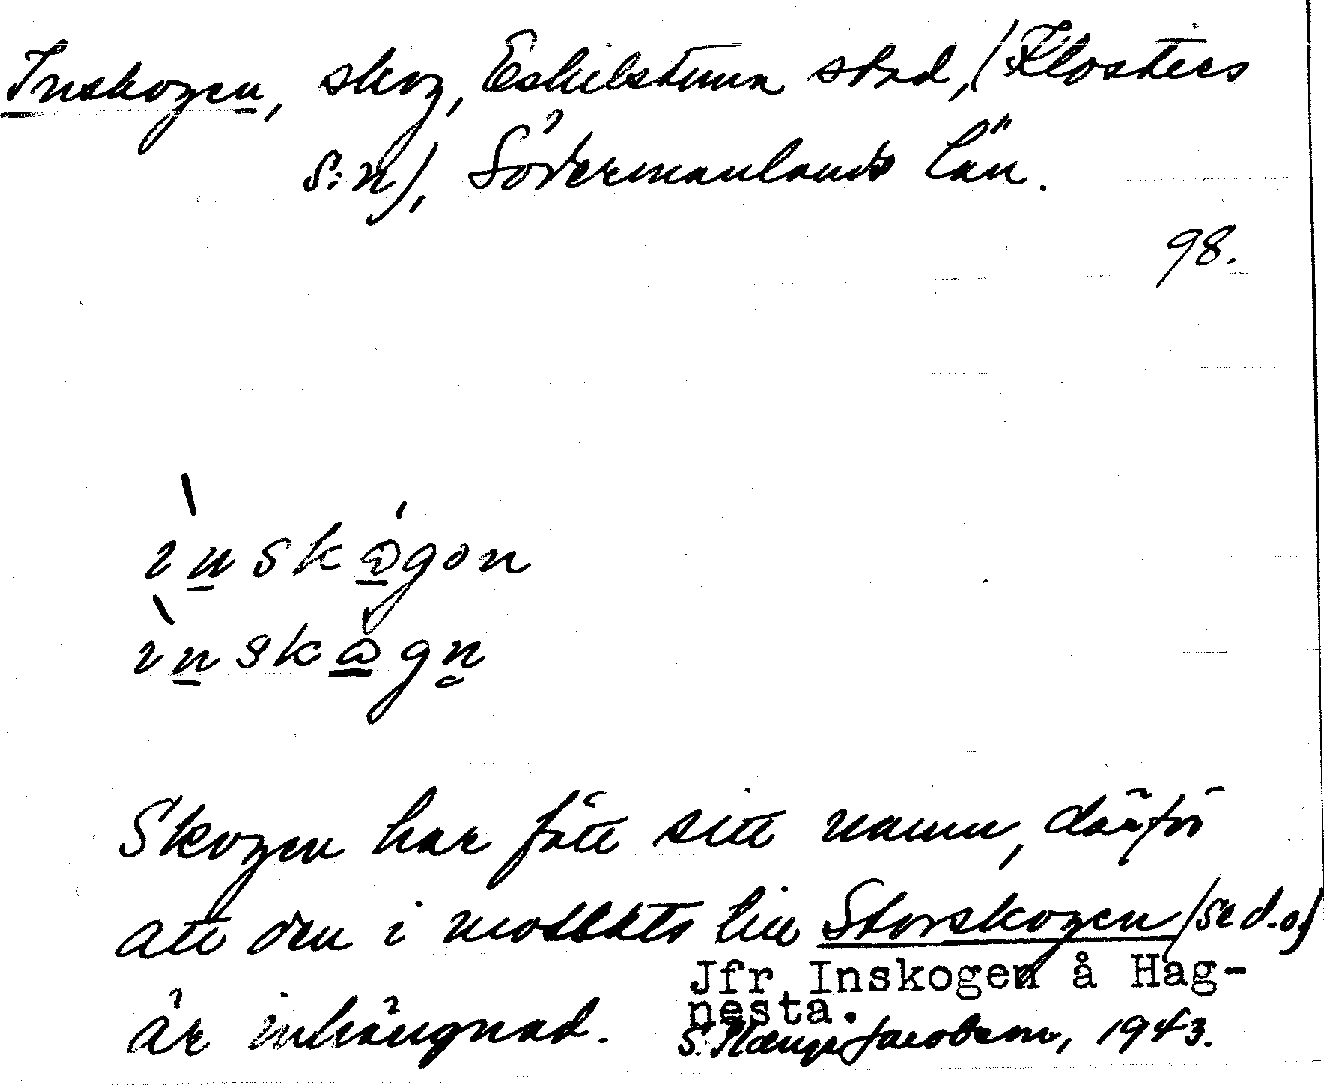 Inskogen, skog, Eskilstuna stad, (Klosters
s:n), Södermanlands län.
98.
ìnskógən
ìnskógn̥
Skogen har fått sitt namn, därför
att den i motsats till Storskogen (se d.o)
är inhängnad.
Jfr Inskogen å Hag-
nesta.
S. Jacobson, 1943.